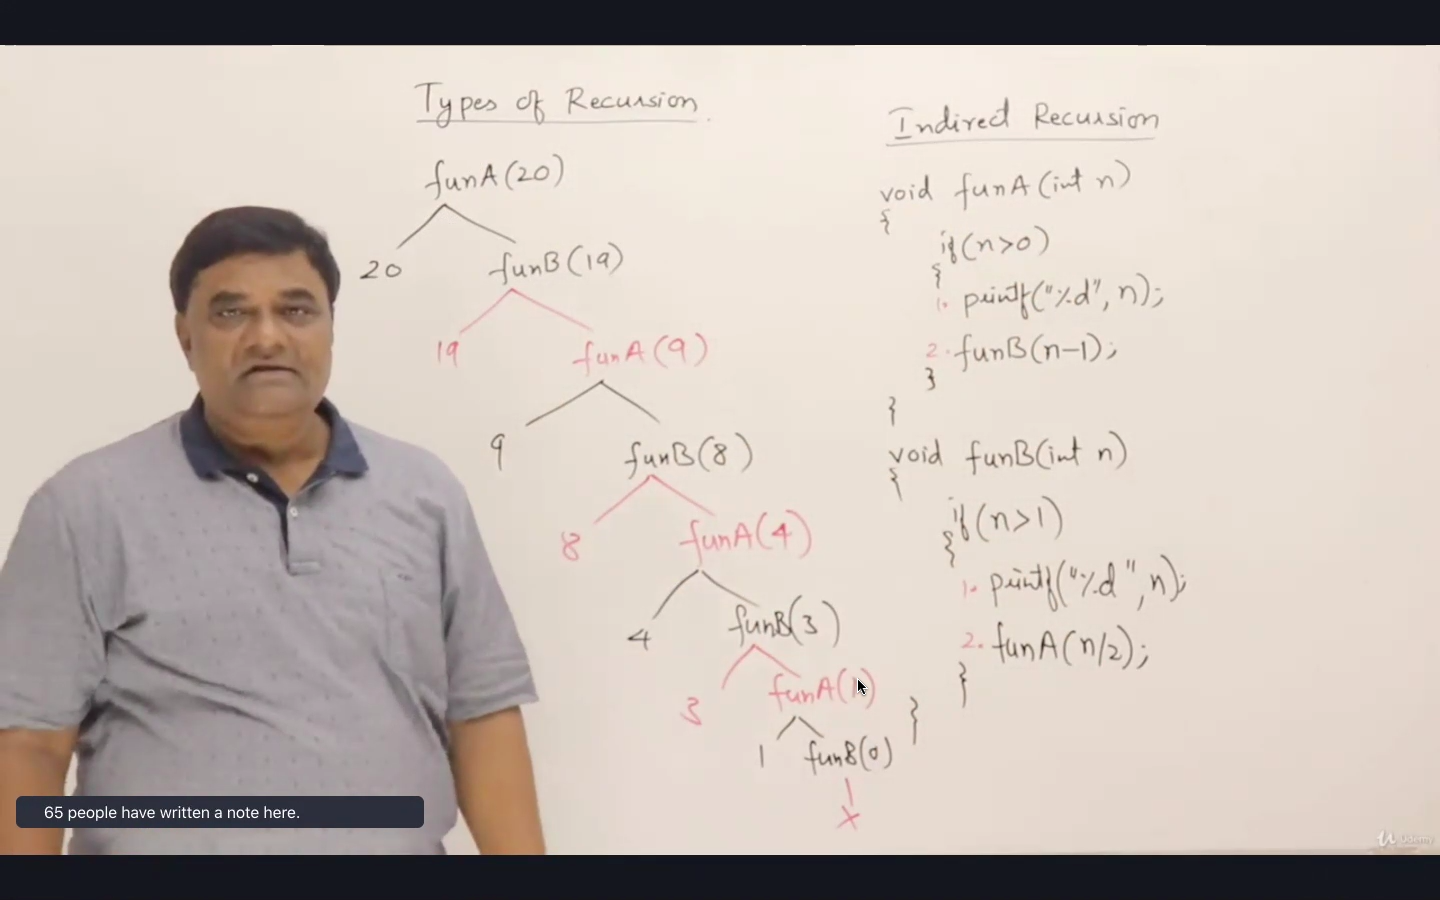 Types of Recursion
funA(20)
20 funB(19)
19 funA(9)
9 funB(8)
8 funA(4)
4 funB(3)
3 funA(1)
1 funB(0)
X
Indirect Recursion
void funA(int n)
{
if(n>0)
{
1. printf("%d", n);
2. funB(n-1);
}
}
void funB(int n)
{
if(n>1)
{
1. printf("%d", n);
2. funA(n/2);
}
}
65 people have written a note here.
Udemy